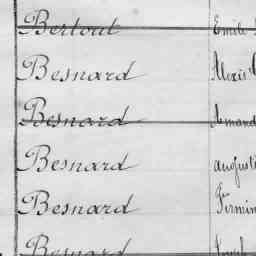 Bertout Emile
Besnard Alexis
Besnard Amand
Besnard august
Besnard Firmin
Besnard